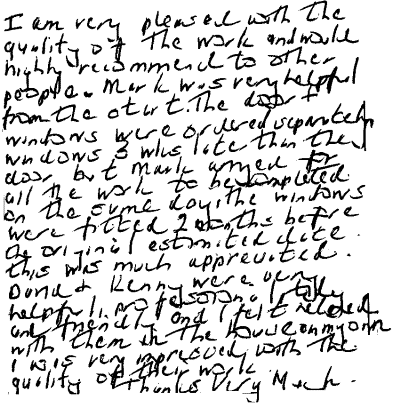 I am very pleased with the
quality of the work and would
highly recommend to other
people. Mark was very helpful
from the start. The door +
windows were ordered separately
windows 3 wks late than the
door but Mark arranged for
all the work to be completed
on the same day. The windows
were fitted 2 months before
the original estimated date.
this was much appreciated.
David & Kenny were very
helpful, professional
and friendly and I felt relaxed
with them in the house on my own
I was very impressed with the
quality of their work
Thanks Very Much.